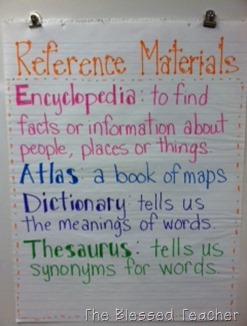 Reference Materials
Encyclopedia: to find
facts or information about
people, places or things.
Atlas: a book of maps
Dictionary: tells us
the meanings of words.
Thesaurus: tells us
synonyms for words.
The Blessed Teacher